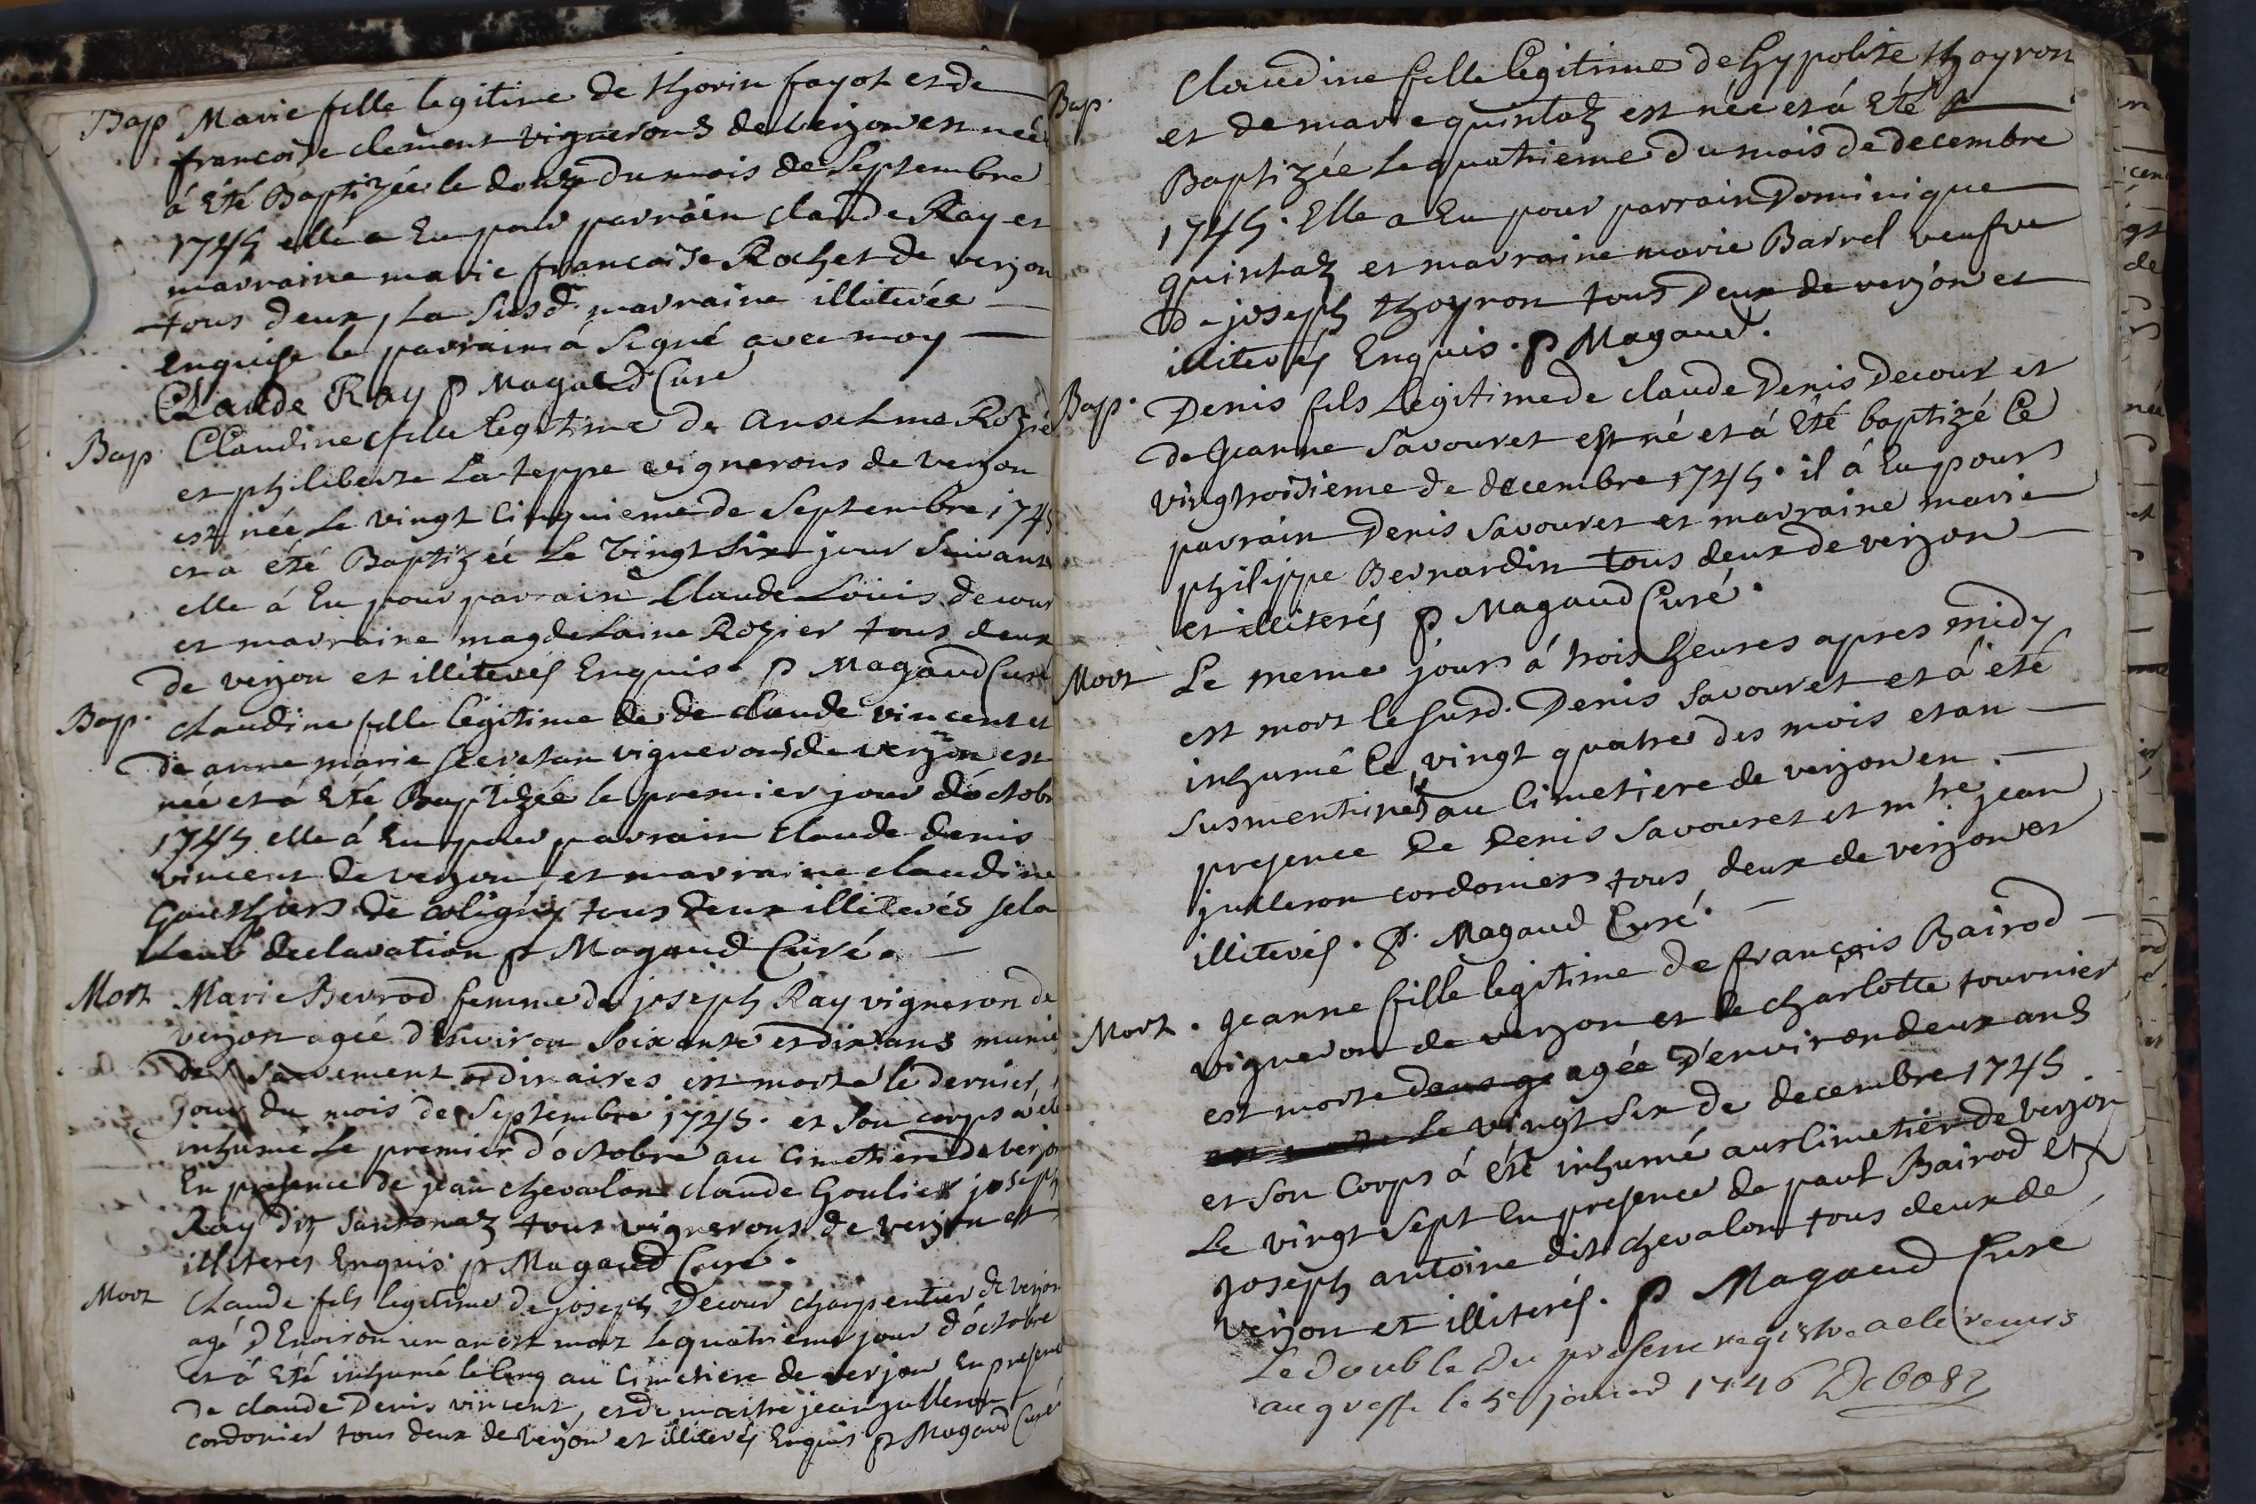 Bap Marie fille legitime de thorin fayot et de
francoise clement vignerons de verjon est née
á Eté Baptizée le douze du mois de Septembre
1745 elle a Eu pour parrain claude Ray et
marraine marie francoise Rochet de verjon
tous deux, la susd. marraine illiterée
enquise le parrain á Signé avec moy
Claude Ray P Magaud Curé
Bap Claudine fille legitime de anselme Rozie
et philiberte La teppe vignerons de verjon
est née Le vingt Cinquieme de Septembre 1745
et a été Baptizée Le vingt Six jour Suivant
elle á Eu pour parrain Claude Loüis decour
et marraine magdelaine Rozier tous deux
de verjon et illiterés Enquis. P Magaud Curé
Bap. claudine fille legitime de de claude vincent et
de anne marie secretan vignerons de verjon est
née et á Eté Baptizée le premier jour d'octobr
1745 elle á Eu pour parrain claude denis
vincent de verjon et marraine claudine
Gauthier de coligny tous deux illiterés selo
Leur declaration P Magaud Curé.
Mort Marie Berrod femme de joseph Ray vigneron de
verjon agée d'Environ Soixante et dix ans munie
des Sacrement ordinaires est morte le dernier
jour du mois de Septembre 1745. et Son corps a été
inhumé Le premier d'octobre au Cimetiere de verjon
En presence de jean chevalon claude Goulier joseph
Ray dit Santonaz tous vignerons de verjon et
illiteres Enquis P Magaud Curé.
Mort Claude fils legitime de joseph Decour charpentier de verjon
agé d'Environ un an est mort le quatrieme jour d'octobre
et á Eté inhumé le Cinq au Cimetiere de verjon En presence
de claude Denis vincent, et de maitre jean julleron
cordonier tous deux de verjon et illiterés Enquis P Magaud Curé
Bap. Claudine fille legitime de hypolite thoyron
et de marie quintaz est née et á Eté
Baptizée le quatrieme du mois de decembre
1745. Elle a Eu pour parrain Dominique
quintaz et marraine marie Barrel veufve
de joseph thoyron tous Deux de verjon et
illiterés Enquis. P Magaud.
Bap. Denis fils Legitime de claude Denis Decour et
de jeanne Savouret est né et á Eté baptizé le
vingtroisieme de decembre 1745. il á Eu pour
parrain Denis Savouret et marraine marie
philippe Bernardin tous deux de verjon
et illiterés P Magaud Curé.
Mort Le meme jour á trois heures apres midy
est mort le susd. Denis Savouret et á eté
inhumé le vingt quatre des mois et an
susmentinés au Cimetiere de verjon en
presence de Denis Savouret et mtre jean
julleron cordonier tous deux de verjon et
illiterés. P. Magaud Curé.
Mort. jeanne fille legitime de françois Bairod
vigneron de verjon et de charlotte tournier
est morte agée d'environ deux ans
Le vingt Six de decembre 1745
et Son Corps á été inhumé au Cimetier de verjon
Le vingt Sept En presence de paul Bairod et
joseph antoine dit chevalon tous deux de
verjon et illiterés. P Magaud Curé
Le double du present registre a ete remis
au greffe le 5e janvier 1746